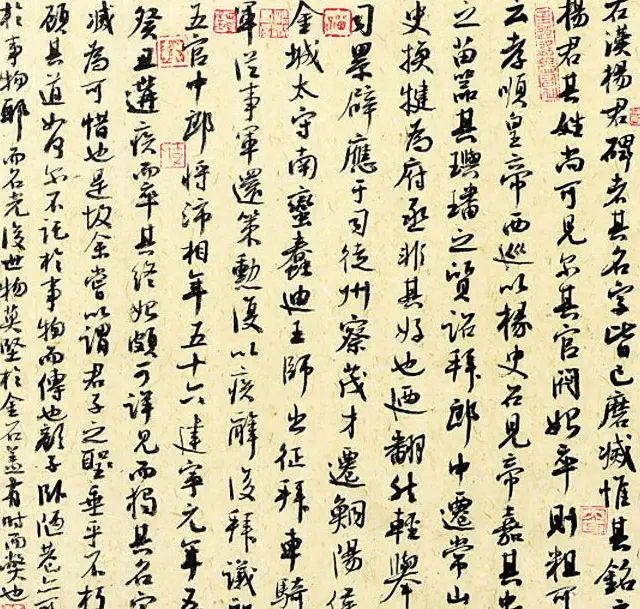 右漢楊君碑者其名字皆已磨滅惟其銘
楊君其姓尚可見尔其官閥始卒則粗可
云孝順皇帝西巡以掾史召見帝嘉其忠
之苗器其璵璠之質詔拜郎中遷常山
史換犍為府丞非其好也迺翻然輕舉
司累辟應于司徒州察茂才遷鮦陽侯
金城太守南蠻蠢迪王師出征拜車騎
軍從事軍還策勳復以疾辭後拜議郎
五官中郎將沛相年五十六建寧元年五
癸丑遘疾而卒其終始頗可詳見而獨其名字
滅為可惜也是故余嘗以謂君子之聖垂乎不朽
顧其道如何尔不託於事物而傳也顏子卧陋巷亦
於事物耶而名光後世物莫堅於金石蓋有時而獘也